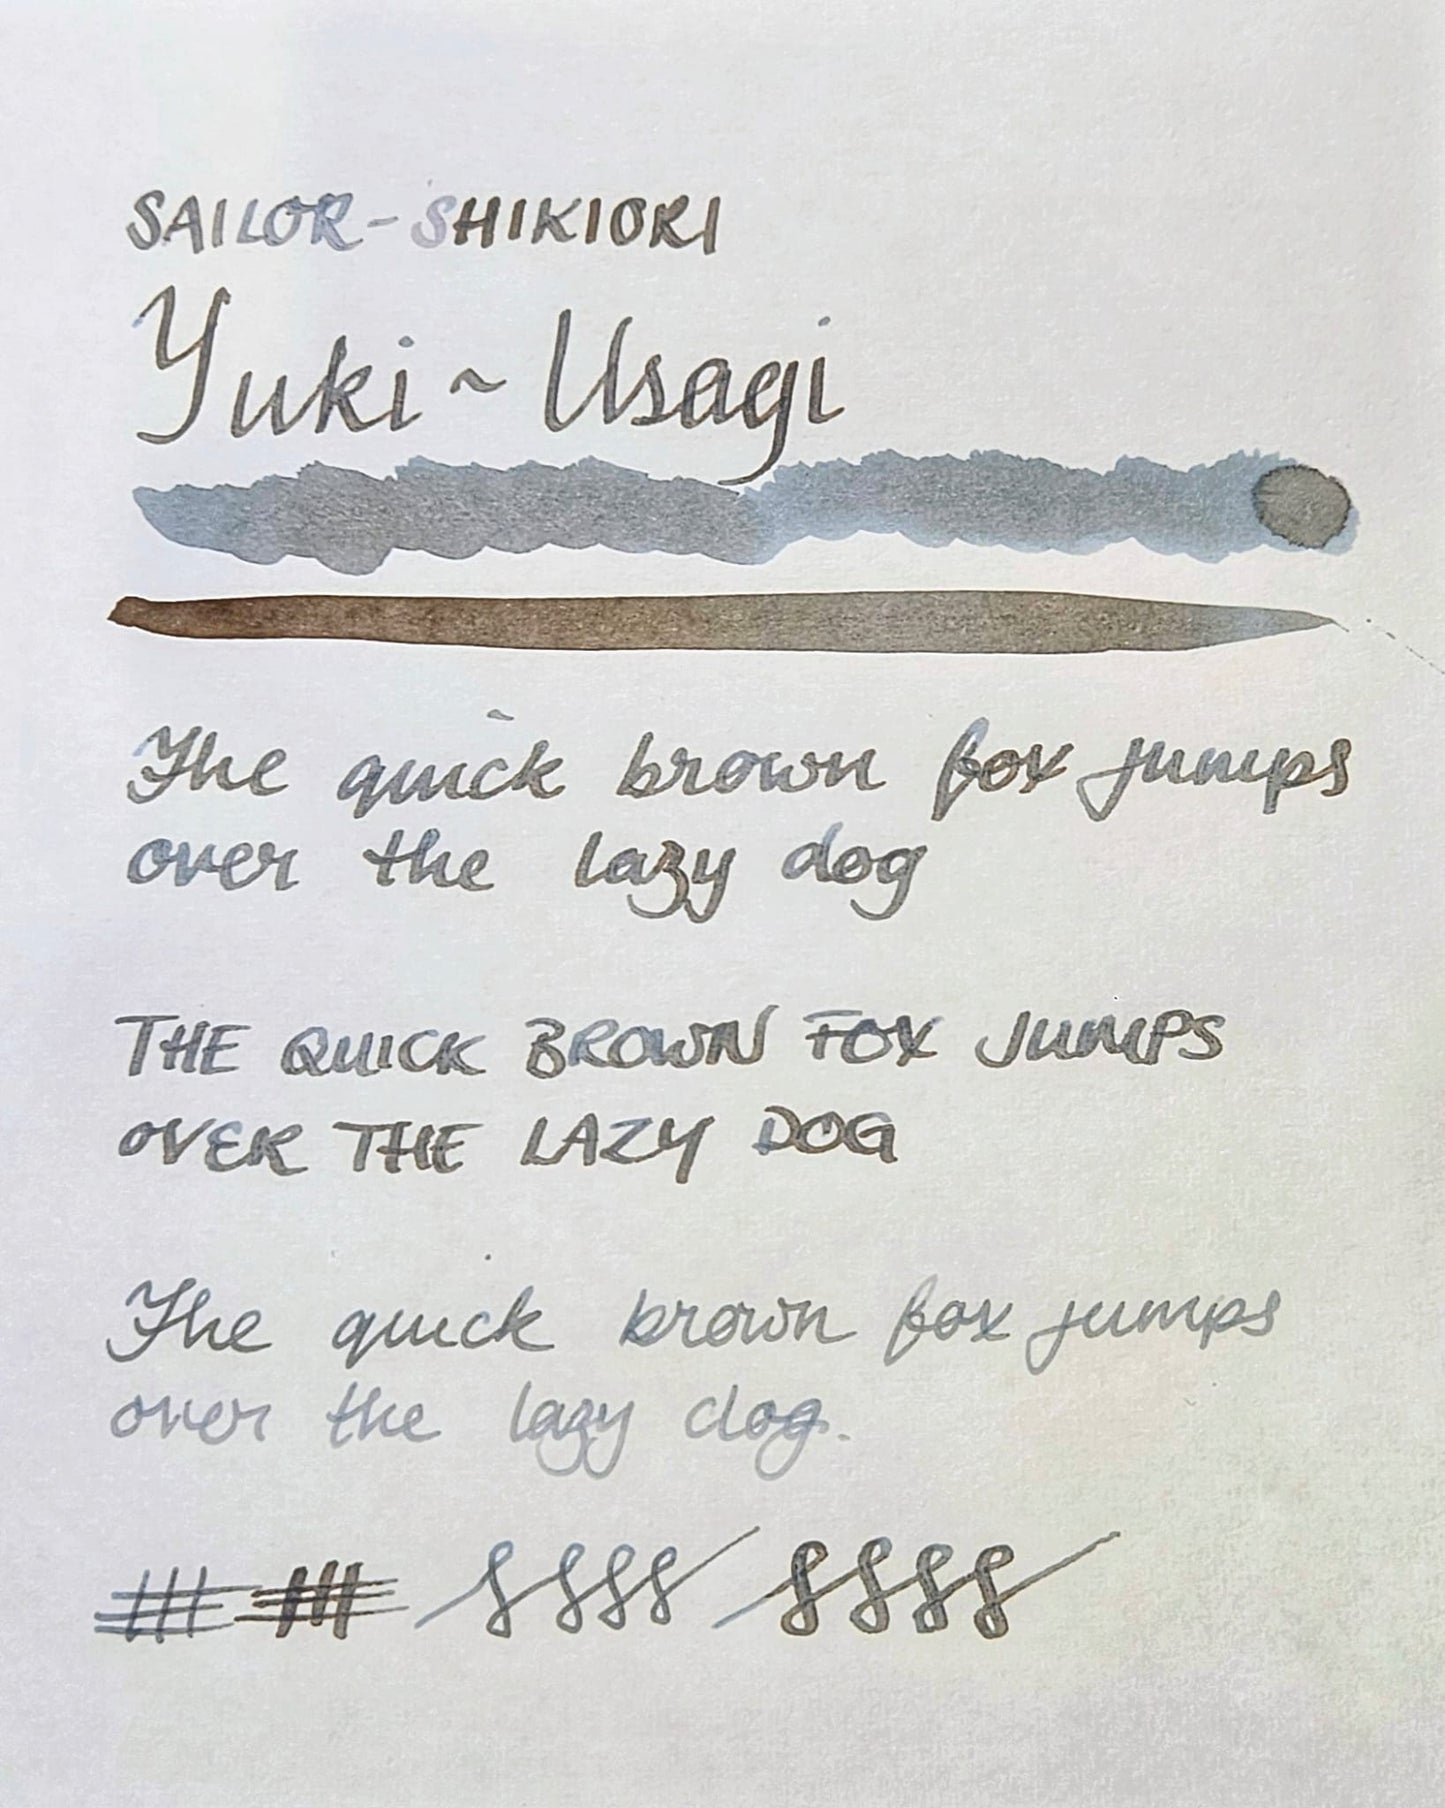 SAILOR - SHIKIORI
Yuki ~ Usagi
The quick brown fox jumps
over the lazy dog
THE QUICK BROWN FOX JUMPS
OVER THE LAZY DOG
The quick brown fox jumps
over the lazy dog.